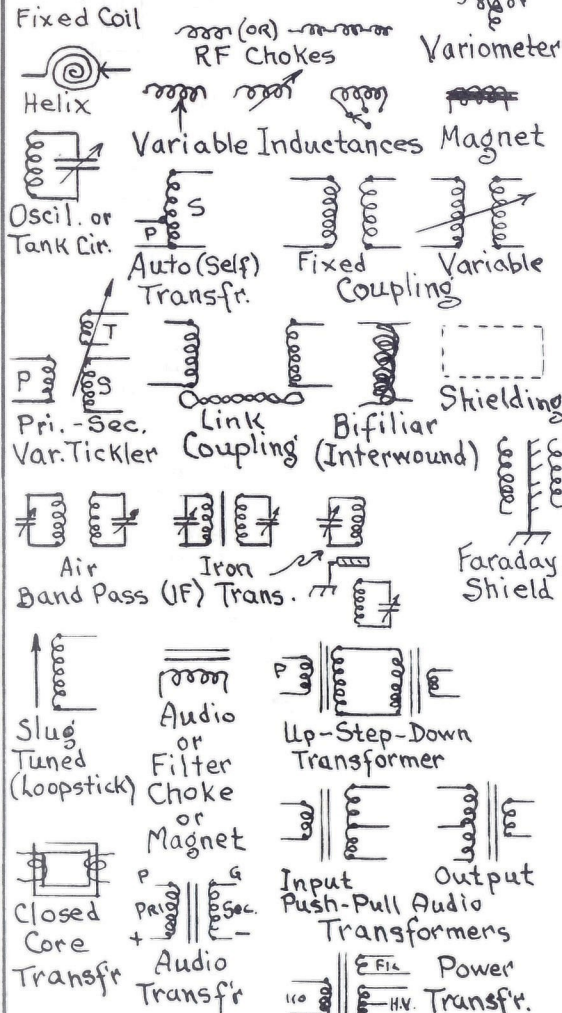 Fixed Coil
(OR)
RF Chokes
Variometer
Helix
Variable Inductances
Magnet
Oscil. or
Tank Cir.
S
P
Auto (Self)
Transfr.
Fixed Variable
Coupling
T
P
S
Pri.-Sec.
Var. Tickler
Link
Coupling
Bifiliar
(Interwound)
Shielding
Faraday
Shield
Air Iron
Band Pass (IF) Trans.
Slug
Tuned
(Loopstick)
Audio
or
Filter
Choke
or
Magnet
P
Up-Step-Down
Transformer
Input Output
Push-Pull Audio
Transformers
Closed
Core
Transf'r
P G
PRI Sec.
+ −
Audio
Transf'r
110
Fil
H.V.
Power
Transf'r.